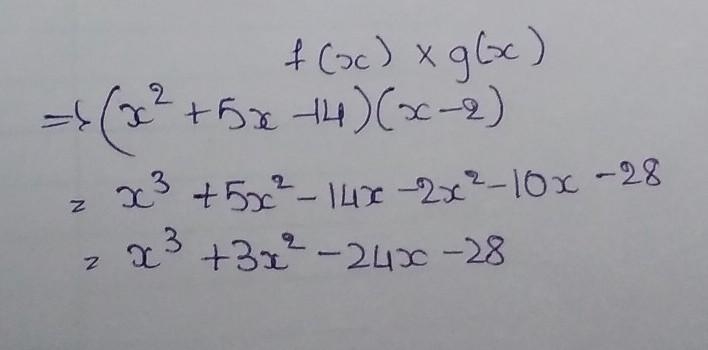 f(x) × g(x)
=> (x² + 5x - 14)(x - 2)
= x³ + 5x² - 14x - 2x² - 10x - 28
= x³ + 3x² - 24x - 28